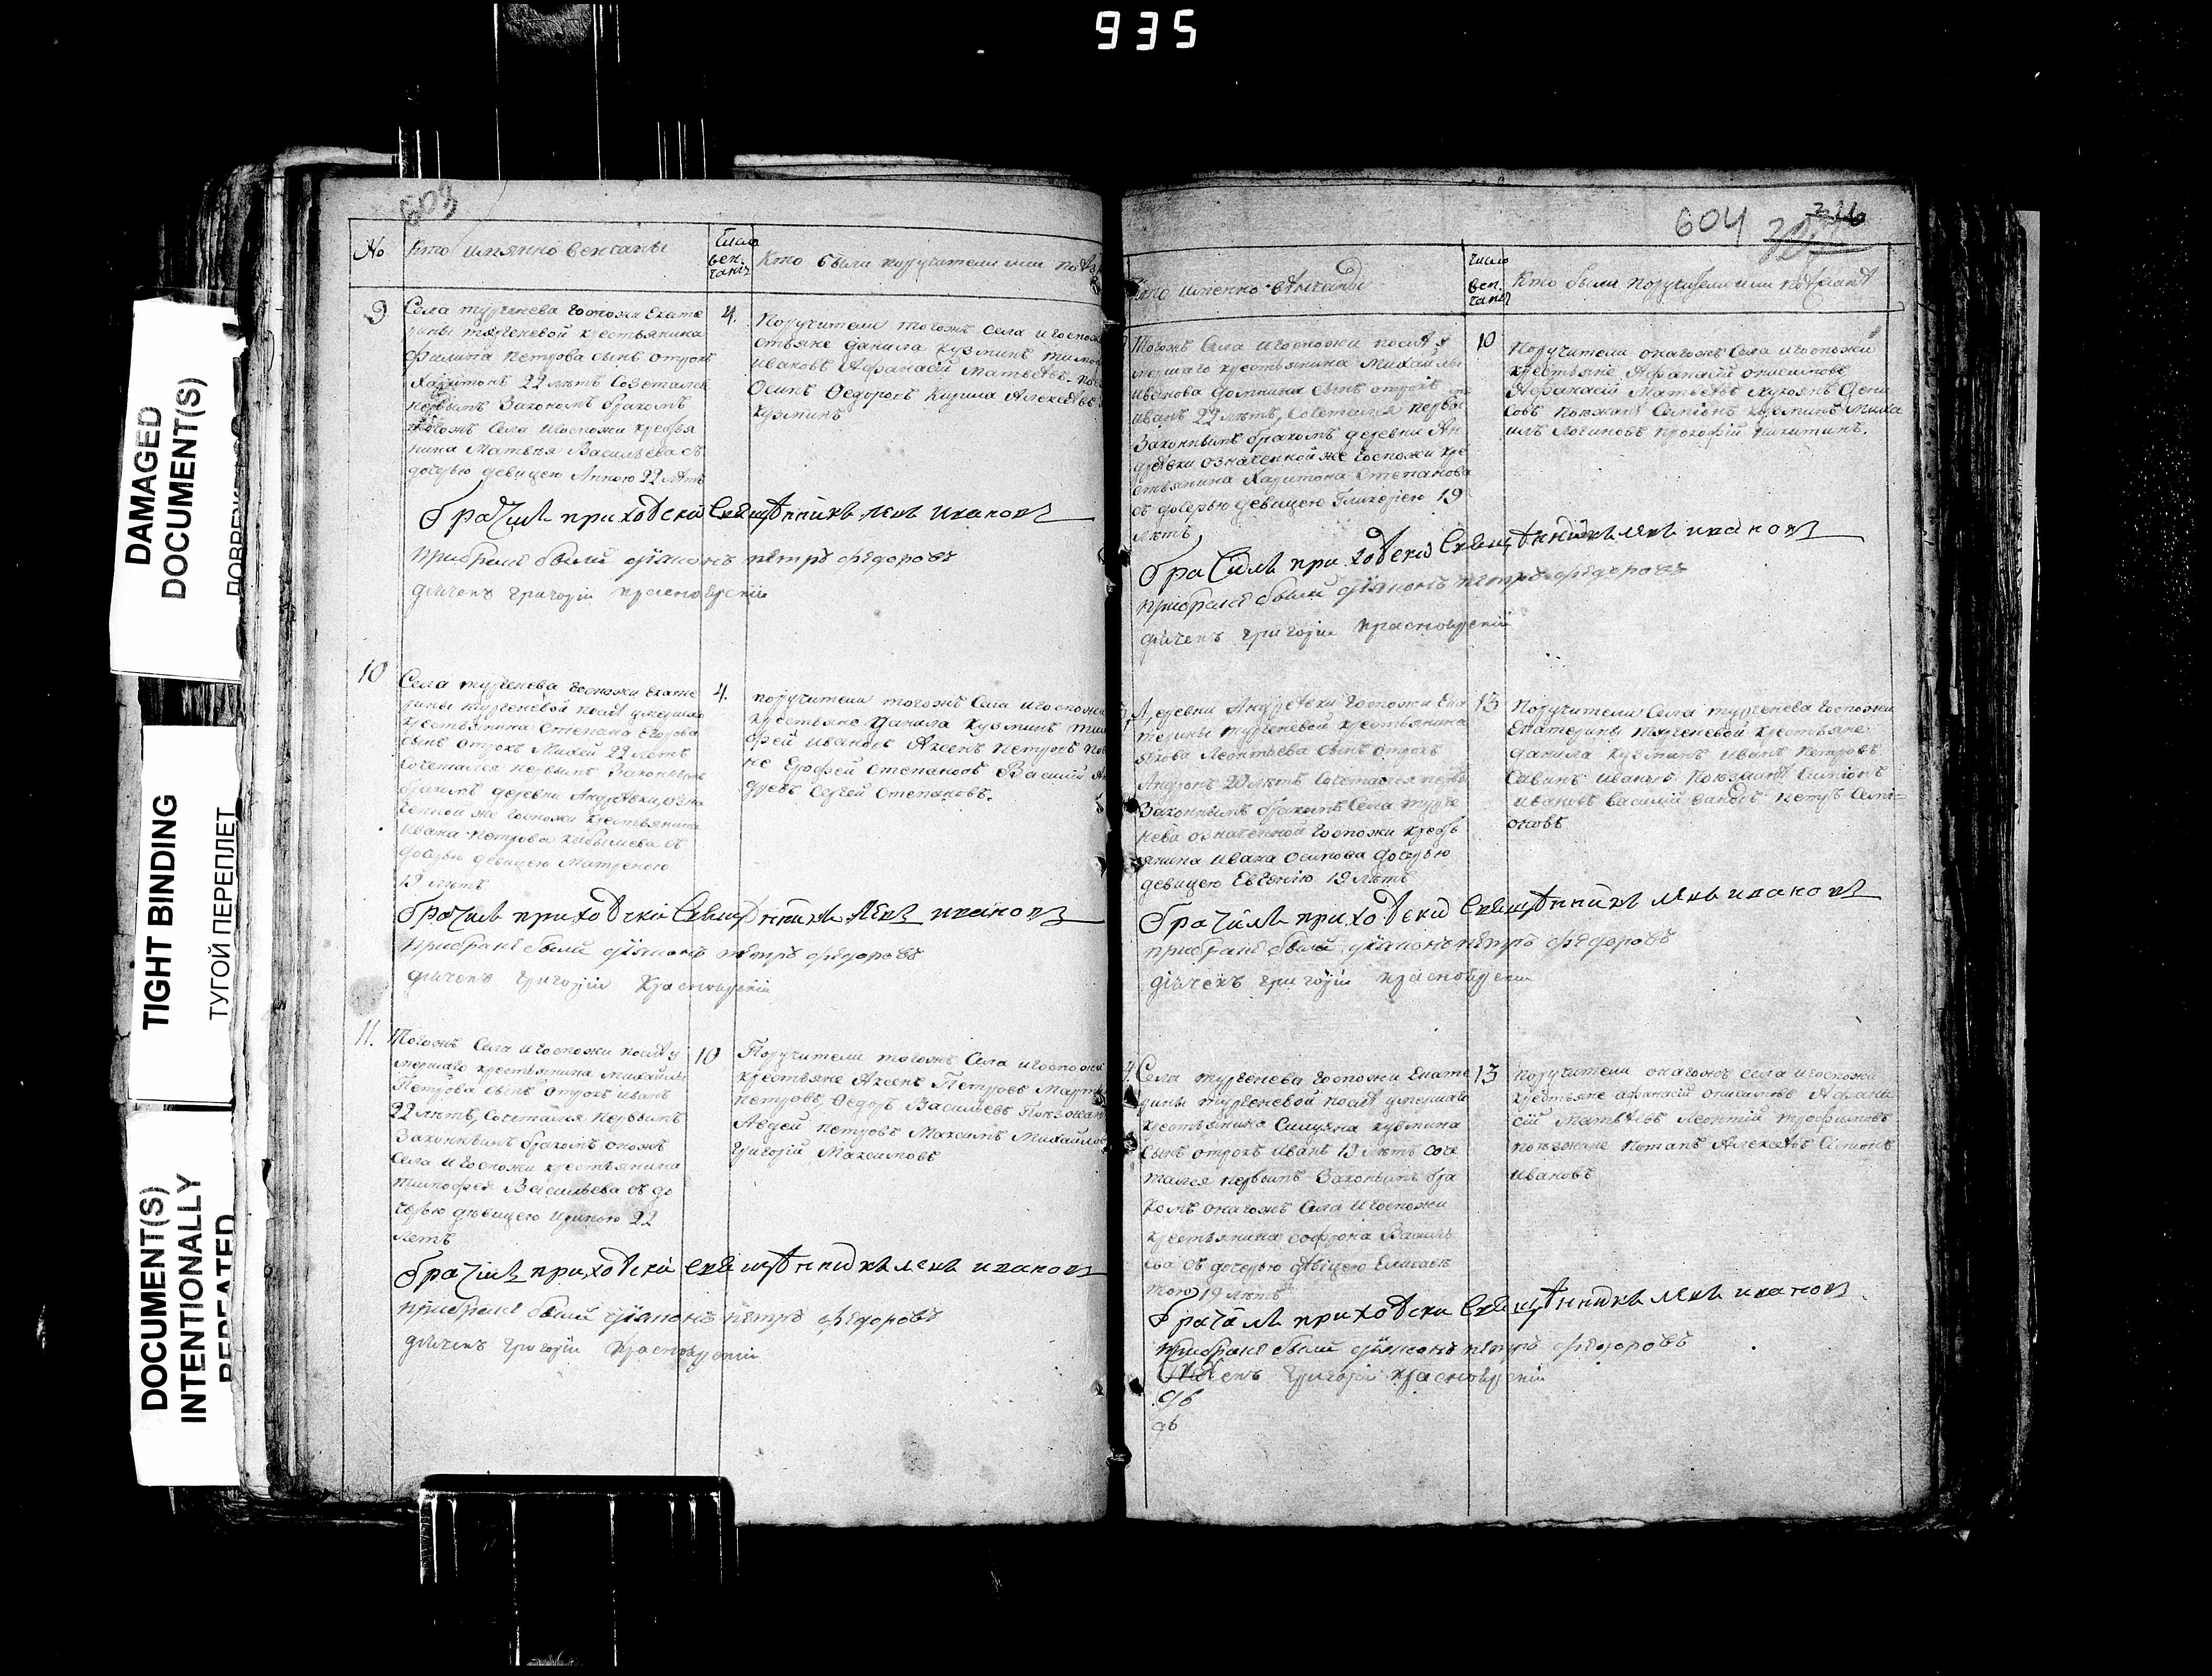 935
DAMAGED
DOCUMENT(S)
TIGHT BINDING
ТУГОЙ ПЕРЕПЛЕТ
DOCUMENT(S)
INTENTIONALLY
REPEATED
603
No
Кто имянно венчаны
Число
вен.
чанiя
Кто были поручители или
9
Села тургенева Госпожи Екате
рины тургеневой крестьянина
филипа петрова сынъ отрокъ
Харитонъ 22 летъ Сочетался
первымъ Закономъ бракомъ
тогожъ Села и госпожи крестья
нина Матвея Васильева съ
дочерью девицею Анною 22 летъ
4.
Поручители тогожъ села и госпожи
стьяне данила кузминъ тимофе
ивановъ Афанасiй Матвеевъ
Осипъ Федоровъ Кирила Алексеевъ
кузминъ
брачилъ приходскiй Священникъ левъ ивановъ
при браке были дiяконъ петръ федоровъ
дьячекъ григорiй
10
Села тургенева Госпожи Екате
рины тургеневой после умершаго
крестьянина Степана Егорова
сынъ отрокъ Михей 22 летъ
сочетался первымъ Законнымъ
бракомъ деревни Андреевки, озна
ченной же госпожи крестьянина
Ивана петрова съ
дочерью девицею Матреною
19 летъ
4.
поручители тогожъ Села и госпожи
крестьяне Данила Кузминъ тимо
фей ивановъ Аксенъ петровъ
не Ерофей степановъ Василiй Ан
дреевъ Сергей Степановъ.
брачилъ приходскiй Священникъ левъ ивановъ
при браке были дiяконъ петръ федоровъ
дьячекъ григорiй
11.
Тогожъ Села и госпожи после у
мершаго крестьянина михайлы
Петрова сынъ отрокъ иванъ
22 летъ, Сочетался первымъ
Законнымъ бракомъ оногожъ
Села и госпожи крестьянина
тимофея Васильева съ до
черью девицею Ириною 22
летъ
10
Поручители тогожъ Села и госпожи
крестьяне Аксенъ Петровъ Марты
петровъ, Федоръ Васильевъ
Авдей петровъ Максимъ Михайловъ
григорiй Максимовъ
брачилъ приходскiй священникъ левъ ивановъ
при браке были дiяконъ петръ федоровъ
дьячекъ григорiй
604
Кто именно венчаны
Число
вен.
чанiя
Кто были поручители или
Тогожъ Села и госпожи после у
мершаго крестьянина Михайлы
иванова сынъ отрокъ
иванъ 22 летъ, Сочетался первы
Законнымъ бракомъ деревни Ан
дреевки означенной же госпожи кре
стьянина Харитона Степанова
съ дочерью девицею Гликерiею 19
летъ
10
Поручители онагожъ Села и госпожи
крестьяне Афанасiй онисимовъ
Афанасiй Матвеевъ Дени
совъ Семiонъ кузминъ Миха
илъ Логиновъ прокофiй никитинъ.
брачилъ приходскiй Священникъ левъ ивановъ
при браке были дiяконъ петръ федоровъ
дьячекъ григорiй
Деревни Андреевки Госпожи Ека
терины тургеневой крестьянина
якова Леонтьева сынъ отрокъ
Андронъ 20 летъ Сочетался первы
Законнымъ бракомъ Села турге
нева означенной госпожи кресть
янина ивана осипова дочерью
девицею Евгенiю 19 летъ
13
Поручители Села тургенева госпожи
Екатерины тургеневой крестьяне
данила кузминъ иванъ петровъ
Савинъ ивановъ Семiонъ
ивановъ василiй петръ Семi
оновъ
брачилъ приходскiй Священникъ левъ ивановъ
при браке были дiяконъ петръ федоровъ
дьячекъ григорiй
Села тургенева госпожи Екате
рины тургеневой после умершаго
крестьянина кузмина
сынъ отрокъ иванъ 19 летъ соче
тался первымъ Законымъ бра
комъ онагожъ Села и госпожи
крестьянина софрона Василь
ева съ дочерью девицею Елисаве
тою 19 летъ
13
поручители онагожъ села и госпожи
крестьяне афанасiй онисимовъ Афана
сiй Матвеевъ леонтiй трофимовъ
поезжане потапъ Алексеевъ Семiонъ
ивановъ
брачилъ приходскiй Священникъ левъ ивановъ
при браке были дiяконъ петръ федоровъ
дьячекъ григорiй